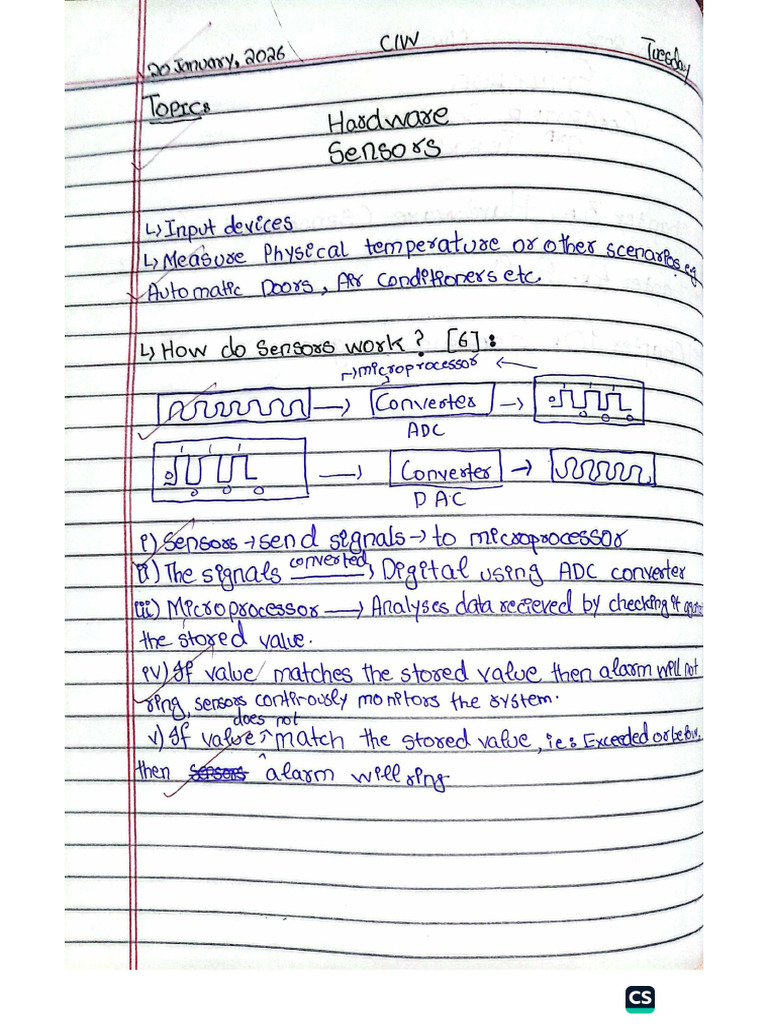 20 January, 2026 C/W Tuesday
Topic:
Hardware
Sensors
↳ Input devices
↳ Measure Physical temperature or other scenarios eg
Automatic Doors, Air Conditioners etc
↳ How do sensors work? [6]:
→microprocessor ←
→ Converter →
ADC
→ Converter →
DAC
i) Sensors → send signals → to microprocessor
ii) The signals converted → Digital using ADC converter
iii) Microprocessor → Analyses data recieved by checking it against
the stored value.
iv) If value matches the stored value then alarm will not
ring, sensors continously monitors the system.
v) If value does not match the stored value, ie: Exceeded or below,
then ~~sensors~~ alarm will ring
CS